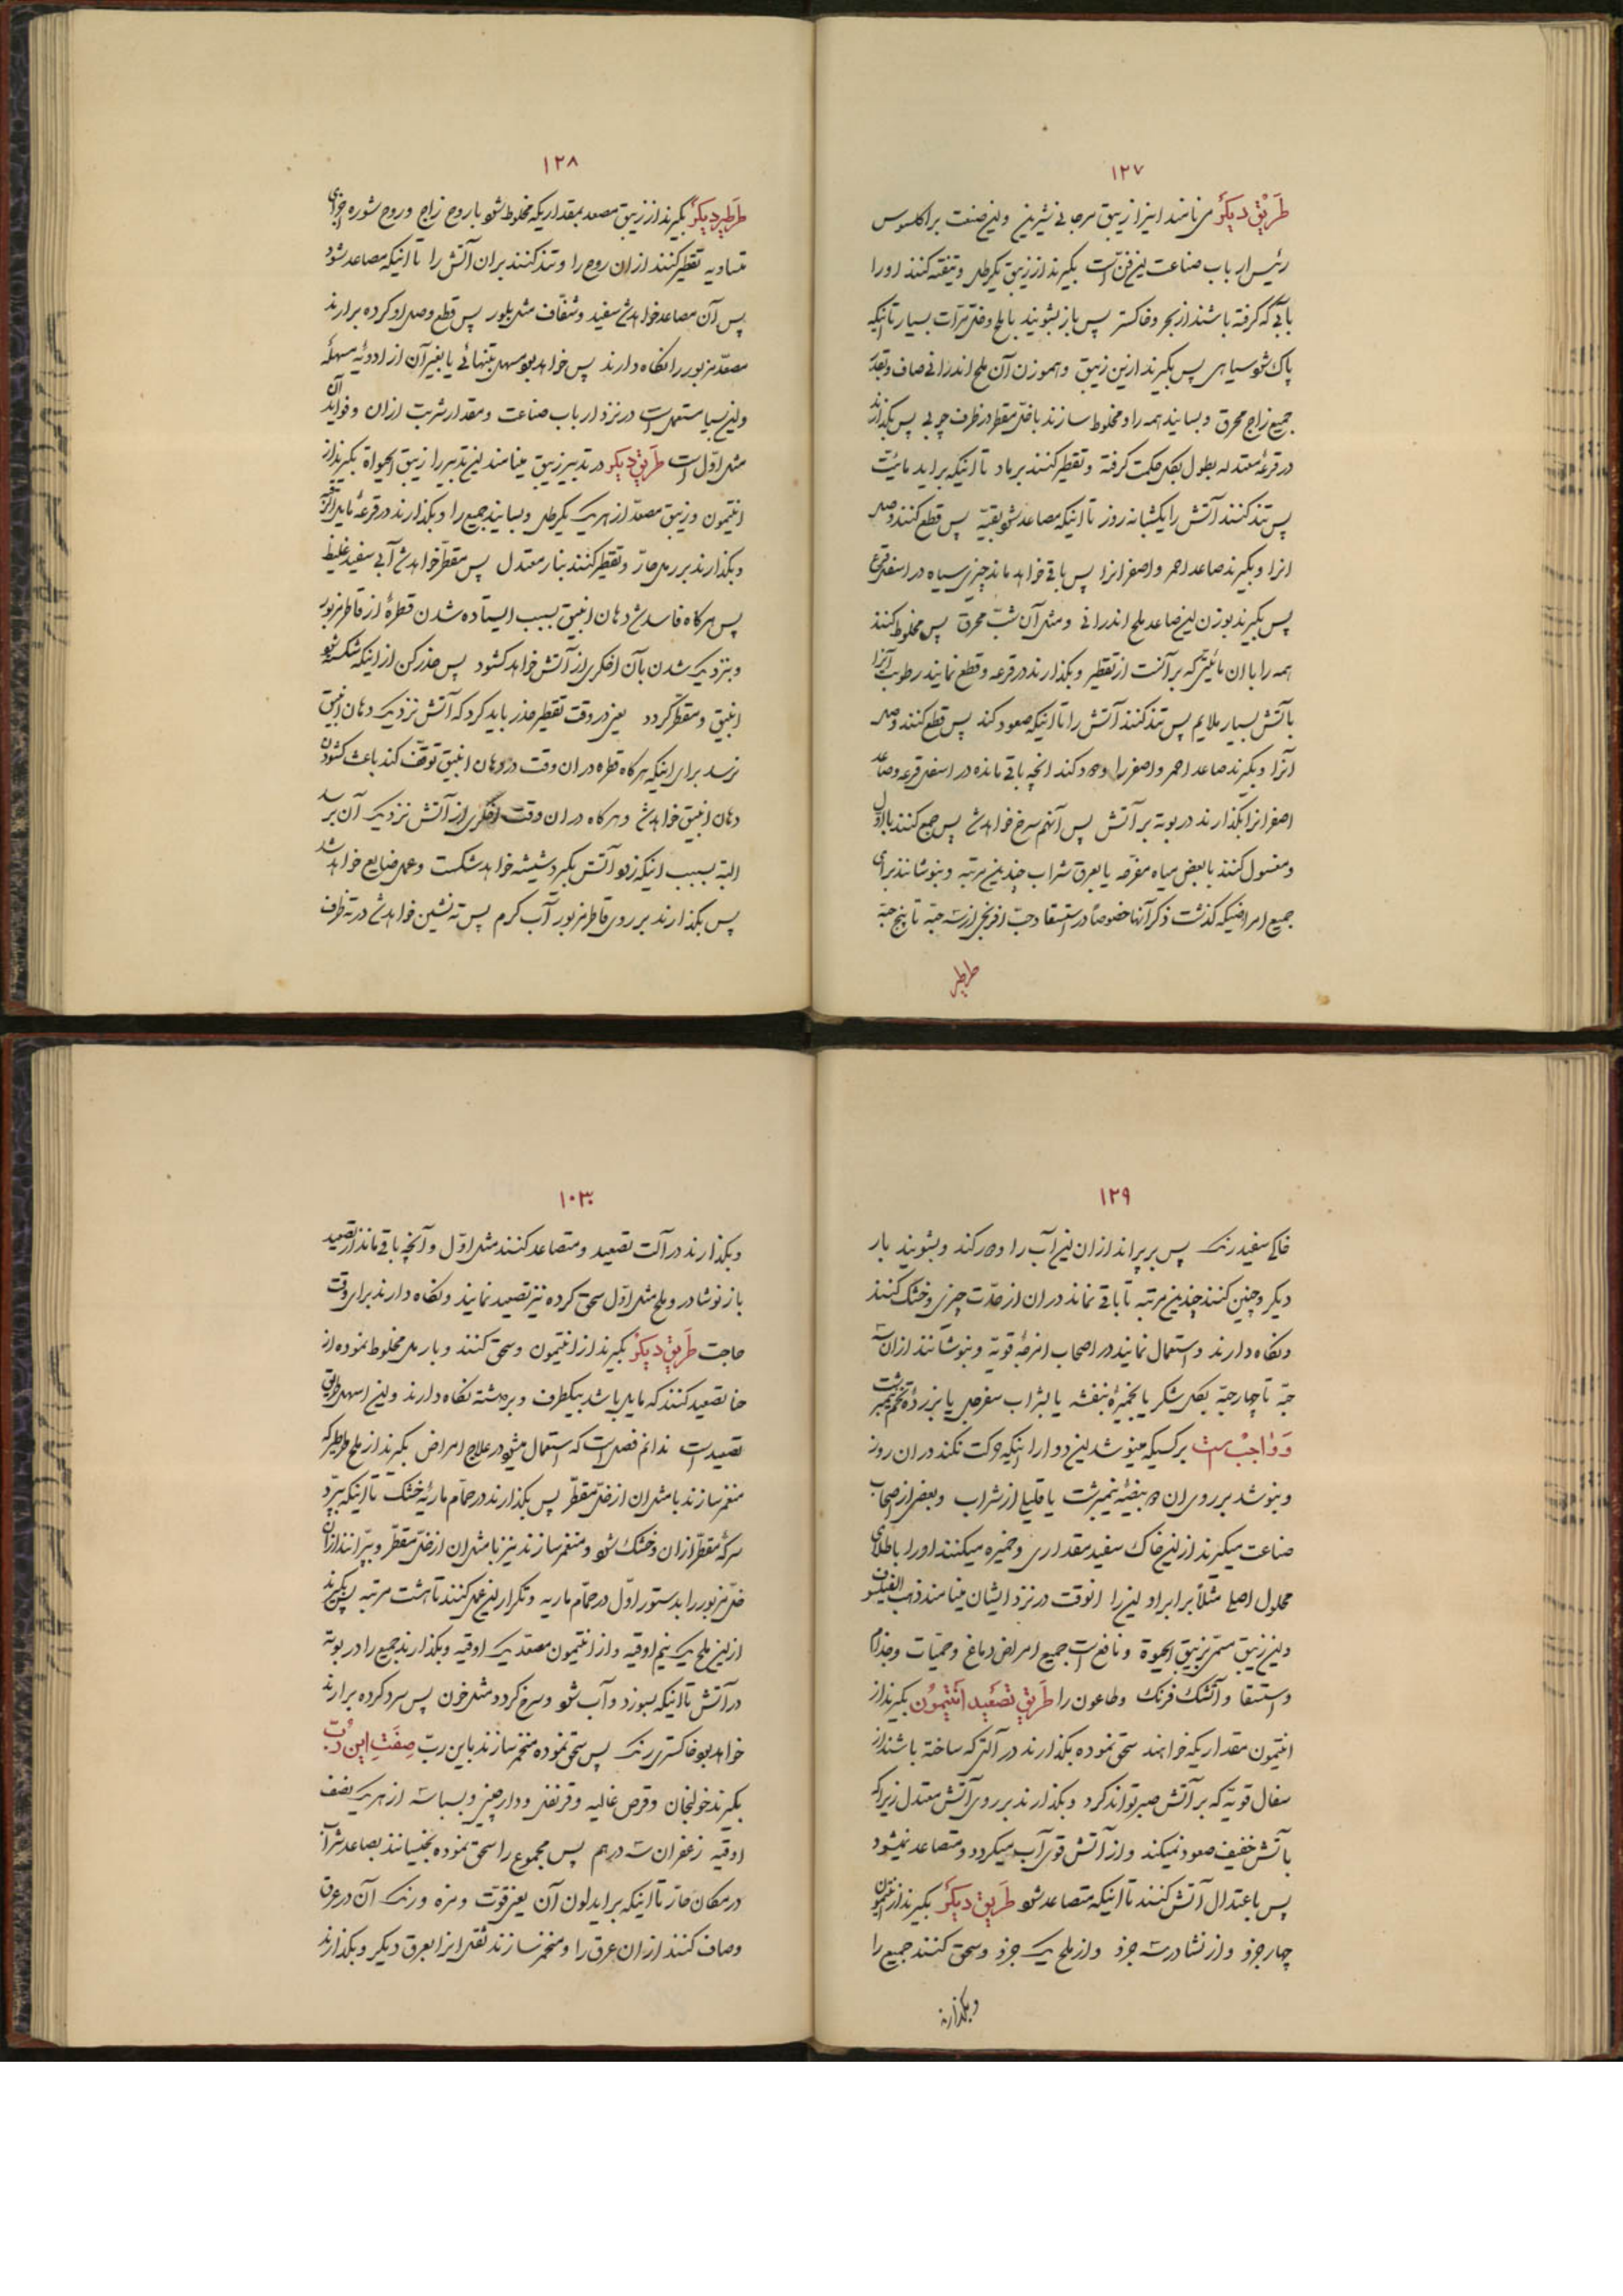 ۱۲۷
طریق دیگر می نامند اینرا زیبق مرجانی شیرین و این صنعت براکلسوس
رئیس ارباب صناعت این فن است بگیرند از زیبق یکرطل و تنقیه کنند اورا
بآبی که گرفته باشند از بحر و خاکستر پس باز بشویند با ملح و خل مرات بسیار تا اینکه
پاک شود سیاهی پس بگیرند ازین زیبق و هموزن آن ملح اندرانی صاف و بقدر
جمیع زاج محرق و بسایند همه را و مخلوط سازند با خل مقطر در ظرف چوبی پس بگذارند
در قرعهٔ معتدله بطول بگل حکمت گرفته و تقطیر کنند برماد تا اینکه براید مائیت
پس تند کنند آتش را یکشبانه روز تا اینکه مصاعد شود بقیه پس قطع کنند وصل
انرا و بگیرند صاعد احمر و اصفر انرا پس باقی خواهد ماند چیزی سیاه در اسفل قرع
پس بگیرند بوزن این صاعد ملح اندرانی و مثل آن شب محرق پس مخلوط کنند
همه را با ان مائیتی که برآنست از تقطیر و بگذارند در قرعه و قطع نمایند رطوبت آنرا
بآتش بسیار ملایم پس تند کنند آتش را تا اینکه صعود کند پس قطع کنند وصل
آنرا و بگیرند صاعد احمر و اصفر را و دور کند انچه باقی مانده در اسفل قرعه و صاعد
اصفر انرا بگذارند در بوته بر آتش پس آنهم سرخ خواهد شد پس جمع کنند با اول
و مغسول کنند با بعض میاه مفرحه یا بعرق شراب چندین مرتبه و بنوشانند برای
جمیع امراضیکه گذشت ذکر آنها خصوصاً در استسقا و حب افرنجی از سه حبه تا پنج حبه
طریق
۱۲۸
طریق دیگر بگیرند از زیبق مصعد بمقداریکه مخلوط شود با روح زاج و روح شوره اجزای
متساویه تقطیر کنند ازان روح را و تند کنند بران آتش را تا اینکه مصاعد شود
پس آن مصاعد خواهد شد سفید و شفاف مثل بلور پس قطع وصل او کرده برارند
مصعد مزبور را نگاه دارند پس خواهد بود مسهل بتنهائی یا بغیر آن از ادویهٔ مسهله
و این بسیار مستعمل است در نزد ارباب صناعت و مقدار شربت ازان و فواید آن
مثل اول است طریق دیگر در تدبیر زیبق مینامند این تدبیر را زیبق الحیواة بگیرند از
انتیمون و زیبق مصعد از هریک یکرطل و بسایند جمیع را و بگذارند در قرعهٔ مایل العنق
و بگذارند بر رمل حار و تقطیر کنند بنار معتدل پس مقطر خواهد شد آبی سفید غلیظ
پس هرگاه فاسد شد دهان انبیق بسبب ایستاده شدن قطرهٔ از قاطر مزبور
و بنزدیک شدن بآن اخگری از آتش خواهد گشود پس حذر کن از اینکه شکسته شود
انبیق و متقطر گردد یعنی در وقت تقطیر حذر باید کرد که آتش نزدیک دهان انبیق
نرسد برای اینکه هرگاه قطره در ان وقت در دهان انبیق توقف کند باعث گشودن
دهان انبیق خواهد شد و هرگاه در ان وقت اخگری از آتش نزدیک آن برسد
البته بسبب اینکه زود آتش بگیرد شیشه خواهد شکست و عمل ضایع خواهد شد
پس بگذارند بر روی قاطر مزبور آب گرم پس ته نشین خواهد شد در ته ظرف
۱۲۹
خاکی سفید رنگ پس بریزانند ازان این آب را و دور کند و بشویند بار
دیگر و چنین کنند چندین مرتبه تا باقی نماند دران از حدت چیزی و خشک کنند
و نگاه دارند و استعمال نمایند در اصحاب امزجهٔ قویه و بنوشانند ازان سه
حبه تا چهار حبه بگل شکر یا بخمیرهٔ بنفشه یا بشراب سفرجل یا بزردهٔ تخم نیمبرشت
و واجب است برکسیکه مینوشد این دوا را اینکه حرکت نکند دران روز
و بنوشد بر روی ان دو بیضهٔ نیمبرشت یا قلیلی از شراب و بعضی از اصحاب
صناعت میگیرند از این خاک سفید مقداری و خمیره میکنند اورا با طلای
محلول اصلی مثلاً برابر او این را انوقت در نزد ایشان مینامند ذهب الفیلسوف
و این زیبق مسمی بزیبق الحیوة و نافع است جمیع امراض دماغ و حمیات و جذام
و استسقا و آتشک فرنگ و طاعون را طریق تصعید انتیمون بگیرند از
انتیمون مقداریکه خواهند سحق نموده بگذارند در آلتی که ساخته باشند از
سفال قویه که بر آتش صبر تواند کرد و بگذارند بر روی آتش معتدل زیراکه
بآتش خفیف صعود نمیکند و از آتش قوی آب میگردد و متصاعد نمیشود
پس باعتدال آتش کنند تا اینکه متصاعد شود طریق دیگر بگیرند از انتیمون
چهار جزو و از نشادر سه جزو و از ملح یک جزو و سحق کنند جمیع را
و بگذارند
۱۰۳۰
و بگذارند در آلت تصعید و متصاعد کنند مثل اول و آنچه باقی ماند از تصعید
باز نوشادر و ملح مثل اول سحق کرده نیز تصعید نمایند و نگاه دارند برای وقت
حاجت طریق دیگر بگیرند از انتیمون و سحق کنند و با رمل مخلوط نموده از
تصعید کنند که مایل باشد بیکطرف و برداشته نگاه دارند و این اسهل طریق
تصعید است ندانم فصل است که استعمال میشود در علاج امراض بگیرند از ملح طرطیر که
منغمر سازند با مثل ان از خل مقطر پس بگذارند در حمام ماریه خشک تا اینکه بپرد
سرکهٔ مقطر ازان و خشک شود و منغمر سازند نیز با مثل ان از خل مقطر و بپرانند ازان
خل مزبور را بدستور اول در حمام ماریه و تکرار این عمل کنند تا هشت مرتبه پس بگیرند
از این ملح یک نیم اوقیه و از انتیمون مصعد یک اوقیه و بگذارند جمیع را در بوتهٔ
در آتش تا اینکه بسوزد و آب شود و سرخ گردد مثل خون پس سرد کرده برارند
خواهد بود خاکستری رنگ پس سحق نموده منخمر سازند باین رب صفت این رب
بگیرند خولنجان و قرص غالیه و قرنفل و دارچینی و بسباسه از هریک نصف
اوقیه زعفران سه درهم پس مجموع را سحق نموده بخیسانند بصاعد شراب
در مکان حار تا اینکه براید لون آن یعنی قوت و مزه و رنگ آن در عرق
و صاف کنند ازان عرق را و منخمر سازند ثقل انرا بعرق دیگر و بگذارند